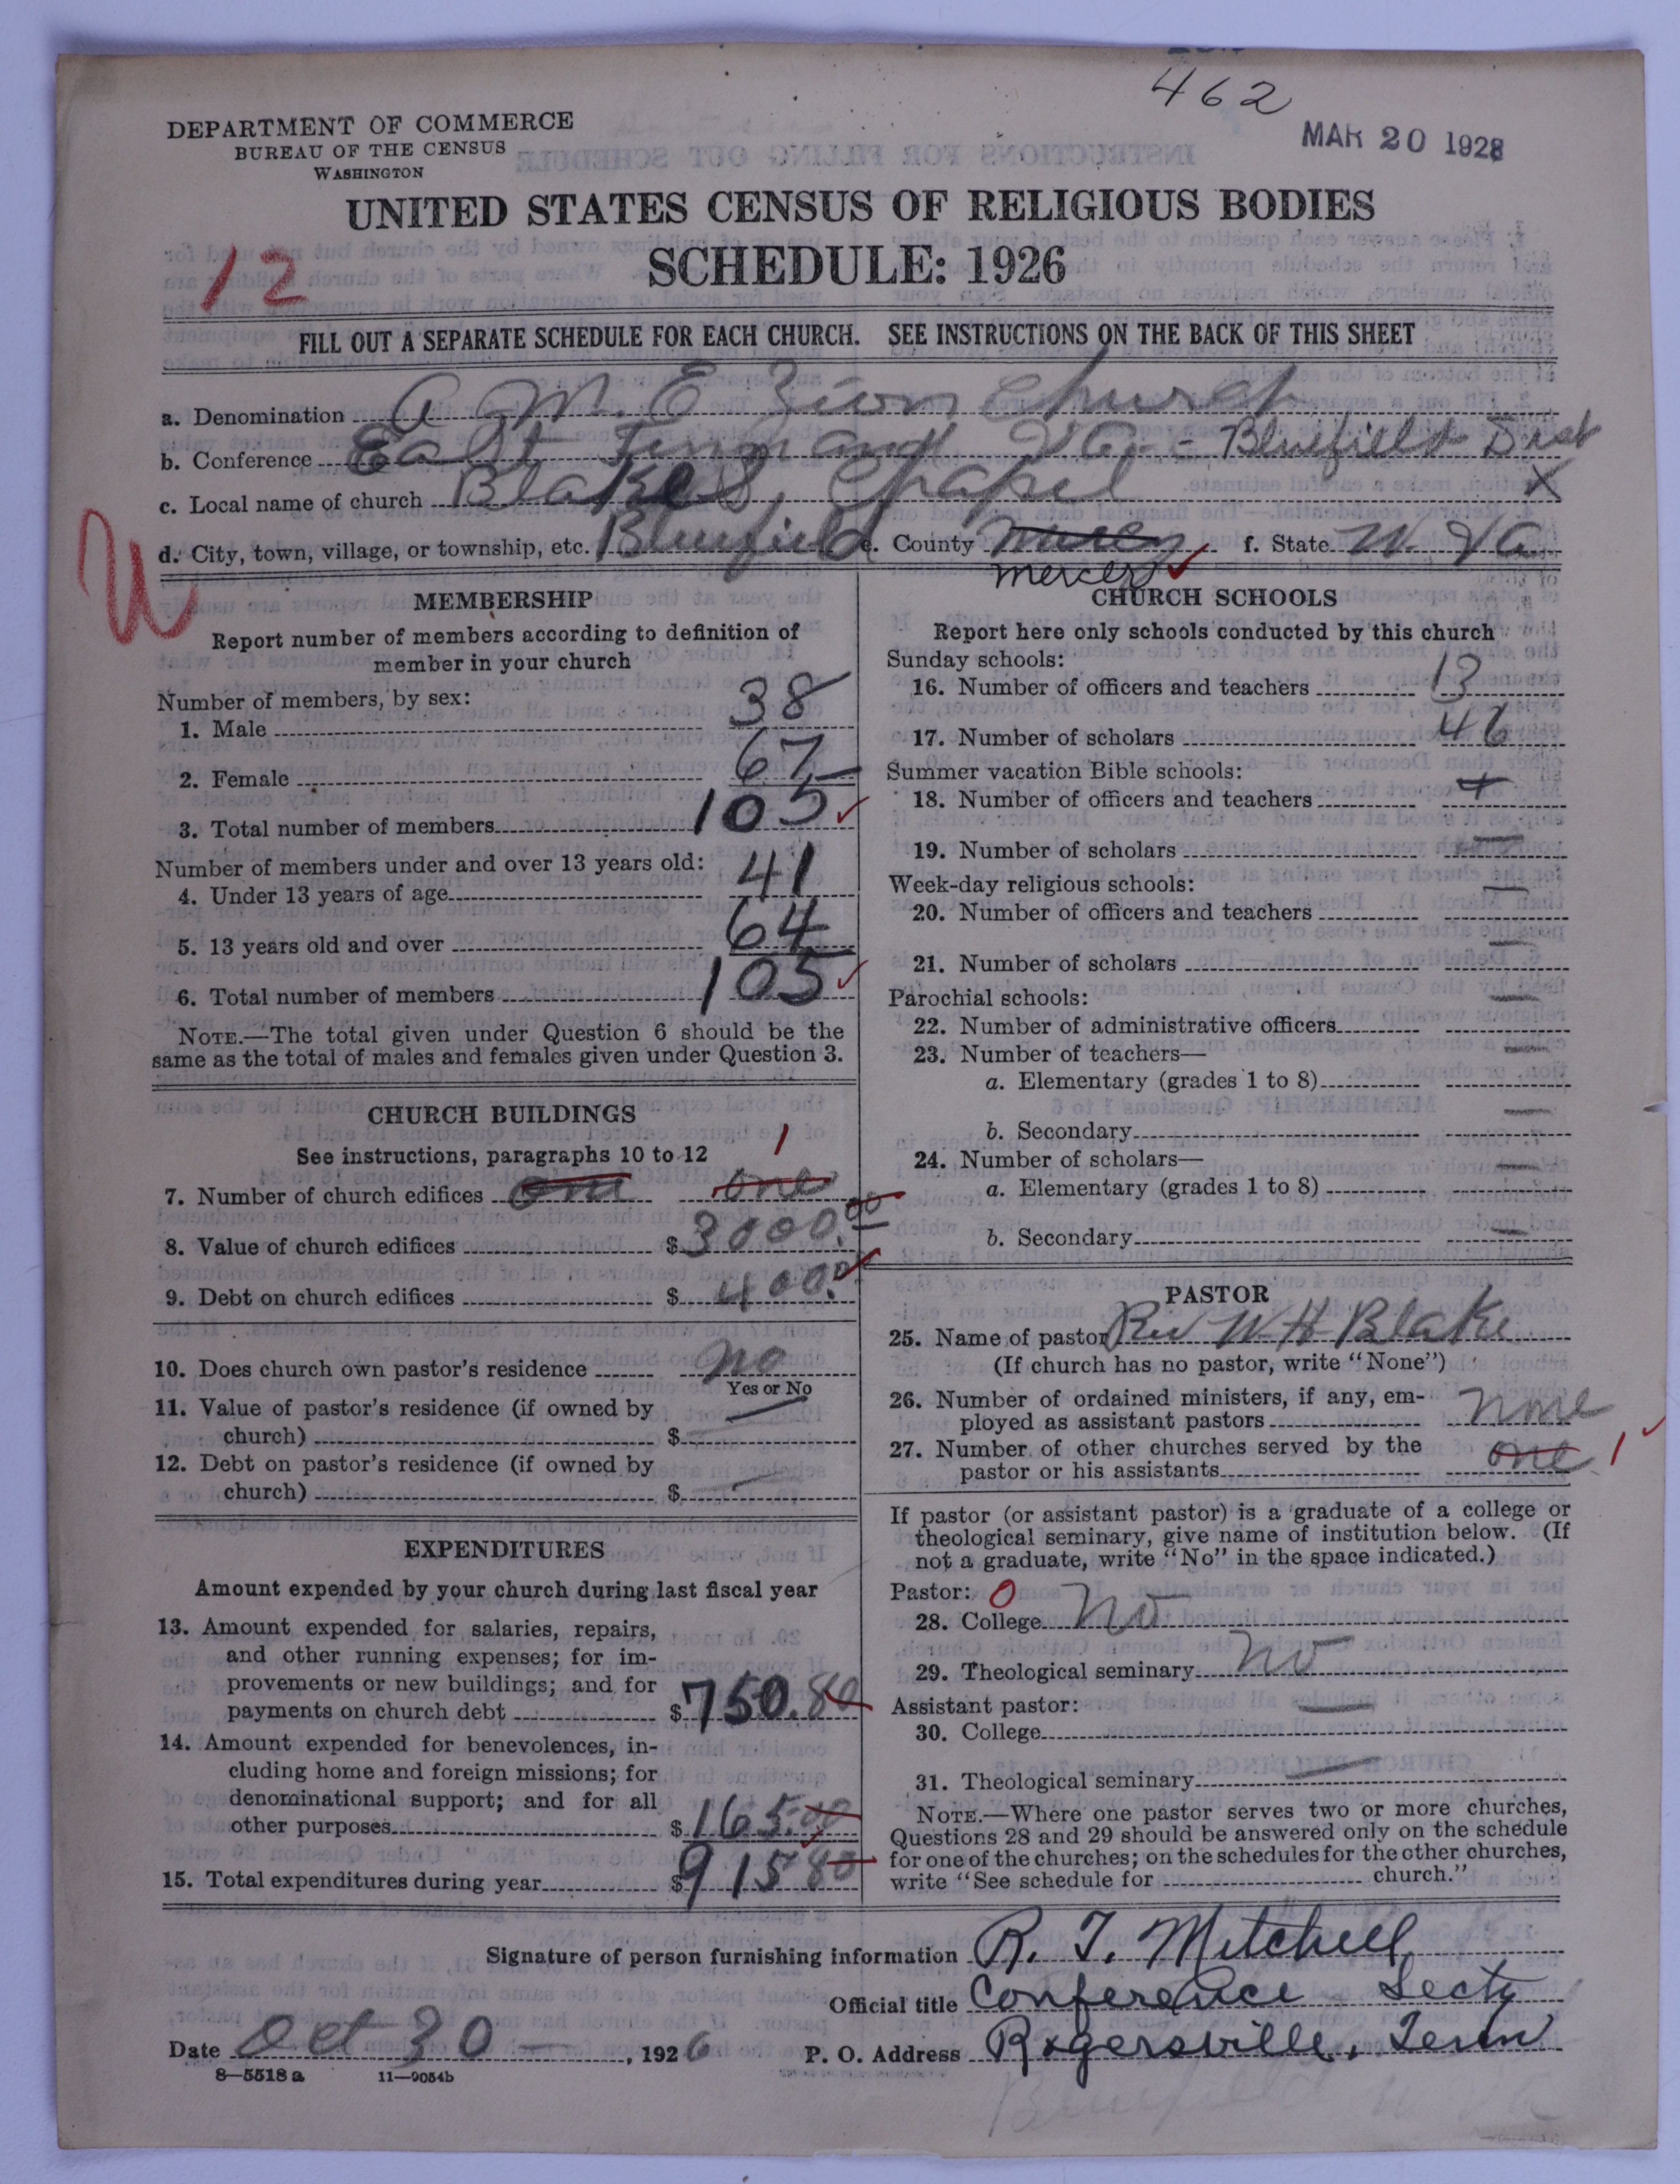 462
MAR 20 1928
DEPARTMENT OF COMMERCE
BUREAU OF THE CENSUS
WASHINGTON
UNITED STATES CENSUS OF RELIGIOUS BODIES
SCHEDULE: 1926
12
FILL OUT A SEPARATE SCHEDULE FOR EACH CHURCH. SEE INSTRUCTIONS ON THE BACK OF THIS SHEET
a. Denomination A. M. E Zion Church
b. Conference East Tenn and Va - Bluefield Dist
c. Local name of church Blakes Chapel X
d. City, town, village, or township, etc. Bluefield e. County Mercer f. State W. Va
U
MEMBERSHIP
Report number of members according to definition of
member in your church
Number of members, by sex:
1. Male 38
2. Female 67
3. Total number of members 105
Number of members under and over 13 years old:
4. Under 13 years of age 41
5. 13 years old and over 64
6. Total number of members 105
NOTE.—The total given under Question 6 should be the
same as the total of males and females given under Question 3.
CHURCH BUILDINGS
See instructions, paragraphs 10 to 12 1
7. Number of church edifices one one
8. Value of church edifices $3000.00
9. Debt on church edifices $400.00
10. Does church own pastor's residence no
Yes or No
11. Value of pastor's residence (if owned by
church) $ —
12. Debt on pastor's residence (if owned by
church) $ —
EXPENDITURES
Amount expended by your church during last fiscal year
13. Amount expended for salaries, repairs,
and other running expenses; for im-
provements or new buildings; and for
payments on church debt $750.80
14. Amount expended for benevolences, in-
cluding home and foreign missions; for
denominational support; and for all
other purposes $165.00
15. Total expenditures during year $915 80
CHURCH SCHOOLS
Report here only schools conducted by this church
Sunday schools:
16. Number of officers and teachers 13
17. Number of scholars 46
Summer vacation Bible schools:
18. Number of officers and teachers
19. Number of scholars —
Week-day religious schools:
20. Number of officers and teachers —
21. Number of scholars —
Parochial schools:
22. Number of administrative officers —
23. Number of teachers—
a. Elementary (grades 1 to 8) —
b. Secondary —
24. Number of scholars—
a. Elementary (grades 1 to 8) —
b. Secondary —
PASTOR
25. Name of pastor Rev W H Blake
(If church has no pastor, write "None")
26. Number of ordained ministers, if any, em-
ployed as assistant pastors none
27. Number of other churches served by the
pastor or his assistants one 1
If pastor (or assistant pastor) is a graduate of a college or
theological seminary, give name of institution below. (If
not a graduate, write "No" in the space indicated.)
Pastor: 0
28. College No
29. Theological seminary No
Assistant pastor:
30. College —
31. Theological seminary —
NOTE.—Where one pastor serves two or more churches,
Questions 28 and 29 should be answered only on the schedule
for one of the churches; on the schedules for the other churches,
write "See schedule for church."
Signature of person furnishing information R. T. Mitchell
Official title Conference Secty
Date Oct 30 —, 1926 P. O. Address Rogersville, Tenn
8—5518 a 11—9054b
Bluefield W Va